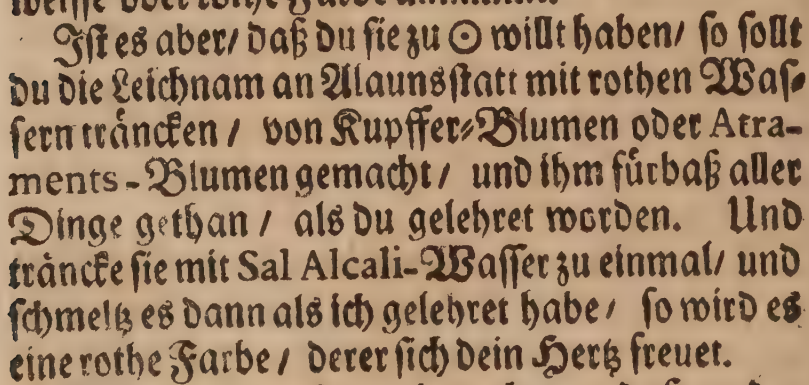 Ist es aber/ daß du sie zu ☉ willt haben/ so sollt
du die Leichnam an Alaunsstatt mit rothen Was-
sern träncken / von Kupffer-Blumen oder Atra-
ments-Blumen gemacht/ und ihm fürbaß aller
Dinge gethan / als du gelehret worden. Und
träncke sie mit Sal Alcali-Wasser zu einmal/ und
schmeltz es dann als ich gelehret habe/ so wird es
eine rothe Farbe / derer sich dein Hertz freuet.